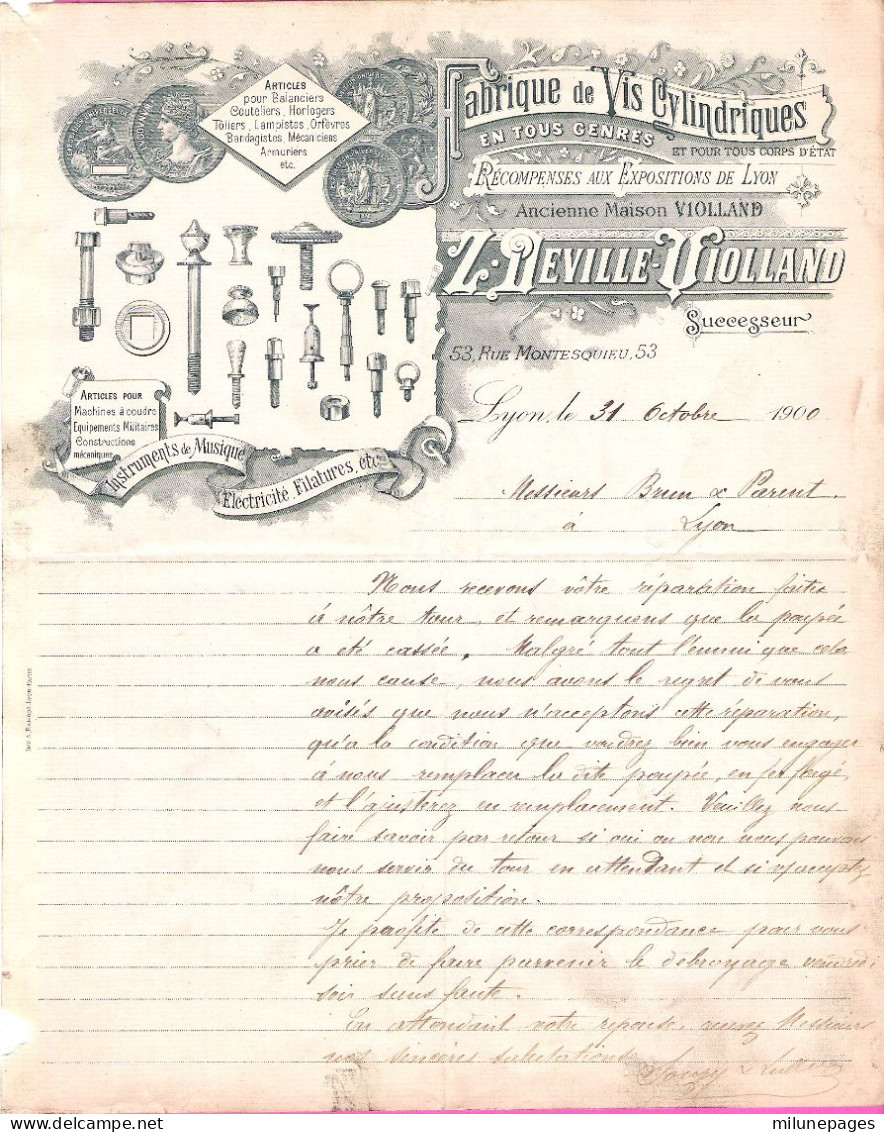 ARTICLES
pour Balanciers
Couteliers, Horlogers
Tôliers, Lampistes, Orfèvres
Bandagistes, Mécaniciens
Armuriers
etc.
Fabrique de Vis Cylindriques
EN TOUS GENRES
ET POUR TOUS CORPS D'ÉTAT
RÉCOMPENSES AUX EXPOSITIONS DE LYON
Ancienne Maison VIOLLAND
Z. DEVILLE-VIOLLAND
Successeur
53, RUE MONTESQUIEU, 53
ARTICLES POUR
Machines à coudre
Equipements Militaires
Constructions
mécaniques
Instruments de Musique
Electricité, Filatures, etc.
Lyon, le 31 Octobre 1900
Messieurs Brun & Parent.
à Lyon
Nous recevons vôtre réparation faite
à nôtre tour, et remarquons que la poupée
a été cassée. Malgré tout l'ennui que cela
nous cause, nous avons le regret de vous
avisés que nous n'acceptons cette réparation,
qu'a la condition que voudrez bien vous engager
à nous remplacer la dite poupée, en fer forgé,
et l'ajusterez en remplacement. Veuillez nous
faire savoir par retour si oui ou non nous pouvons
nous servir du tour en attendant et si acceptez
nôtre proposition.
Je profite de cette correspondance pour vous
prier de faire parvenir le debrayage vendredi
soir sans faute.
En attendant votre reponse, Messieurs
nos sincères salutations
milunepages